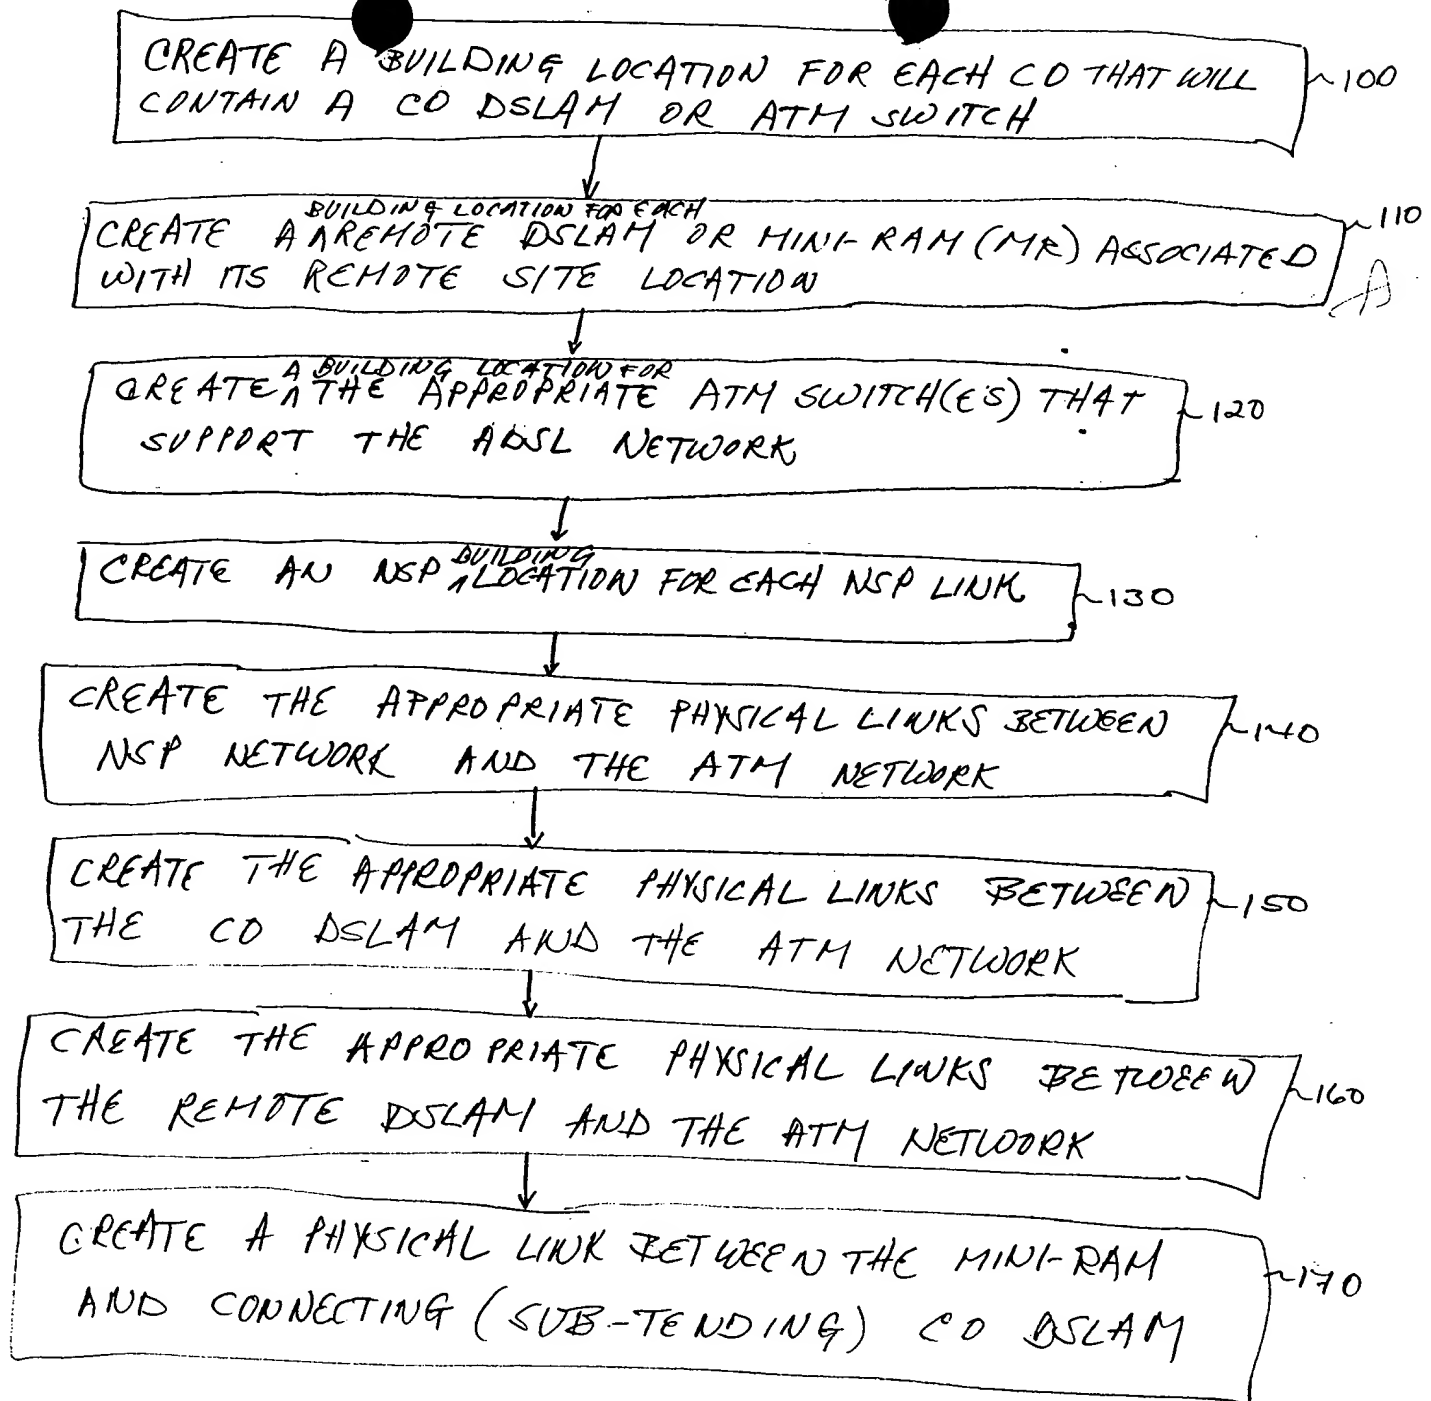 CREATE A BUILDING LOCATION FOR EACH CO THAT WILL
CONTAIN A CO DSLAM OR ATM SWITCH
100
BUILDING LOCATION FOR EACH
CREATE A ^ REMOTE DSLAM OR MINI-RAM (MR) ASSOCIATED
WITH ITS REMOTE SITE LOCATION
110
A
A BUILDING LOCATION FOR
CREATE ^ THE APPROPRIATE ATM SWITCH(ES) THAT
SUPPORT THE ADSL NETWORK
120
BUILDING
CREATE AN NSP ^ LOCATION FOR EACH NSP LINK
130
CREATE THE APPROPRIATE PHYSICAL LINKS BETWEEN
NSP NETWORK AND THE ATM NETWORK
140
CREATE THE APPROPRIATE PHYSICAL LINKS BETWEEN
THE CO DSLAM AND THE ATM NETWORK
150
CREATE THE APPROPRIATE PHYSICAL LINKS BETWEEN
THE REMOTE DSLAM AND THE ATM NETWORK
160
CREATE A PHYSICAL LINK BETWEEN THE MINI-RAM
AND CONNECTING (SUB-TENDING) CO DSLAM
170